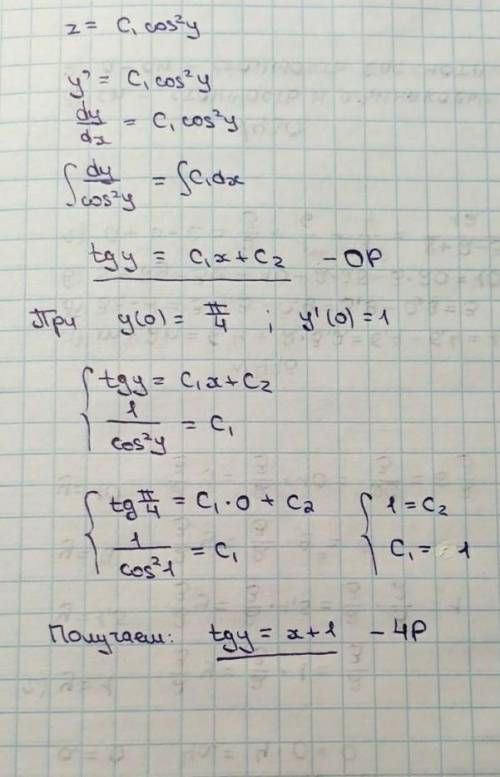 z = C₁ cos²y
y' = C₁ cos²y
dy/dx = C₁ cos²y
∫ dy/cos²y = ∫ C₁dx
tg y = C₁x + C₂ - ОР
При y(0) = π/4 ; y'(0) = 1
{ tg y = C₁x + C₂
1/cos²y = C₁
{ tg π/4 = C₁ · 0 + C₂ { 1 = C₂
1/cos²1 = C₁ C₁ = 1
Получаем: tg y = x + 1 - ЧР